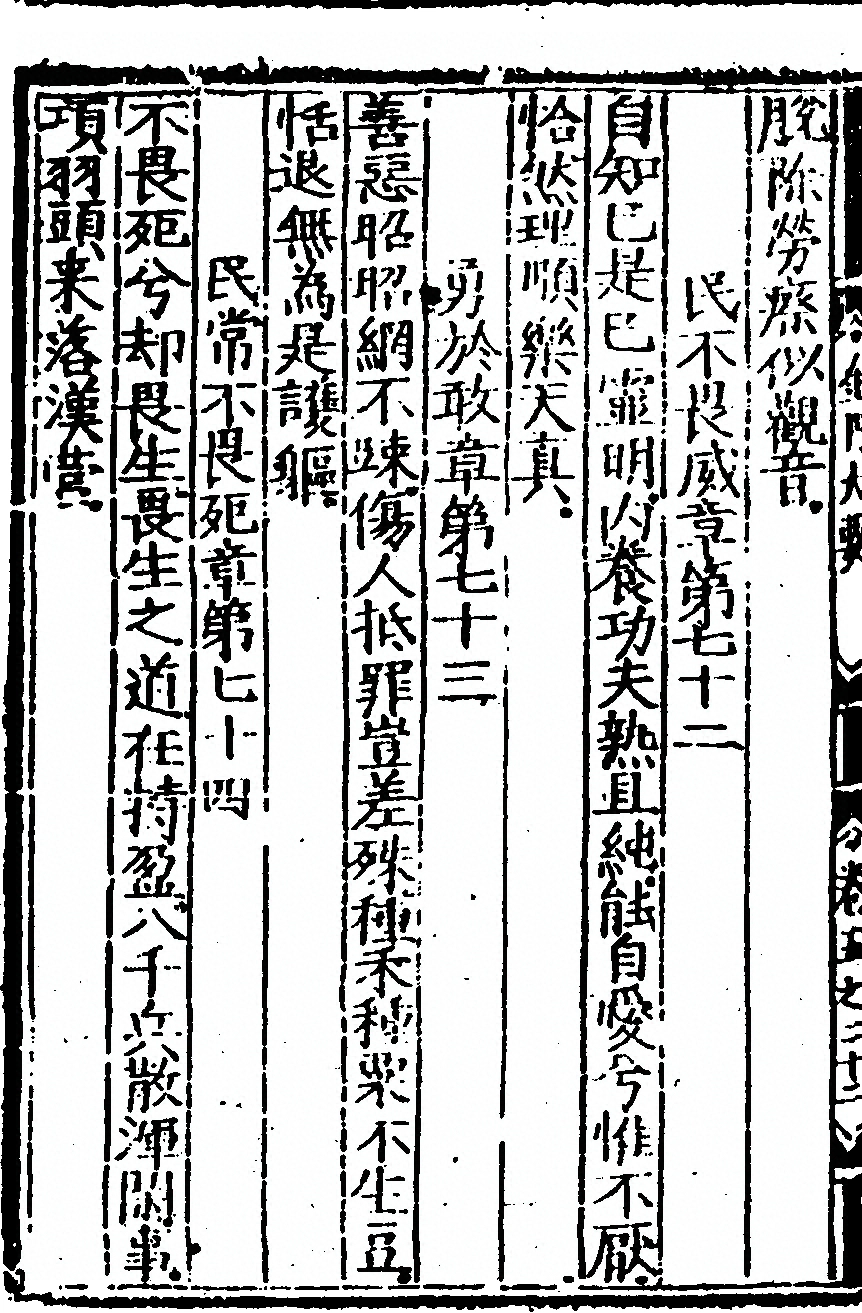 脫除勞瘵似觀音
民不畏威章第七十二
自知已是已靈明內養功夫熟且純能自愛兮惟不厭
恰然理順樂天真
勇於敢章第七十三
善惡昭昭網不踈傷人抵罪豈差殊種禾種粟不生豆
恬退無為是護軀
民常不畏死章第七十四
不畏死兮却畏生畏生之道在持盈八千兵散渾閑事
項羽頭來落漢營
卷五之二十二